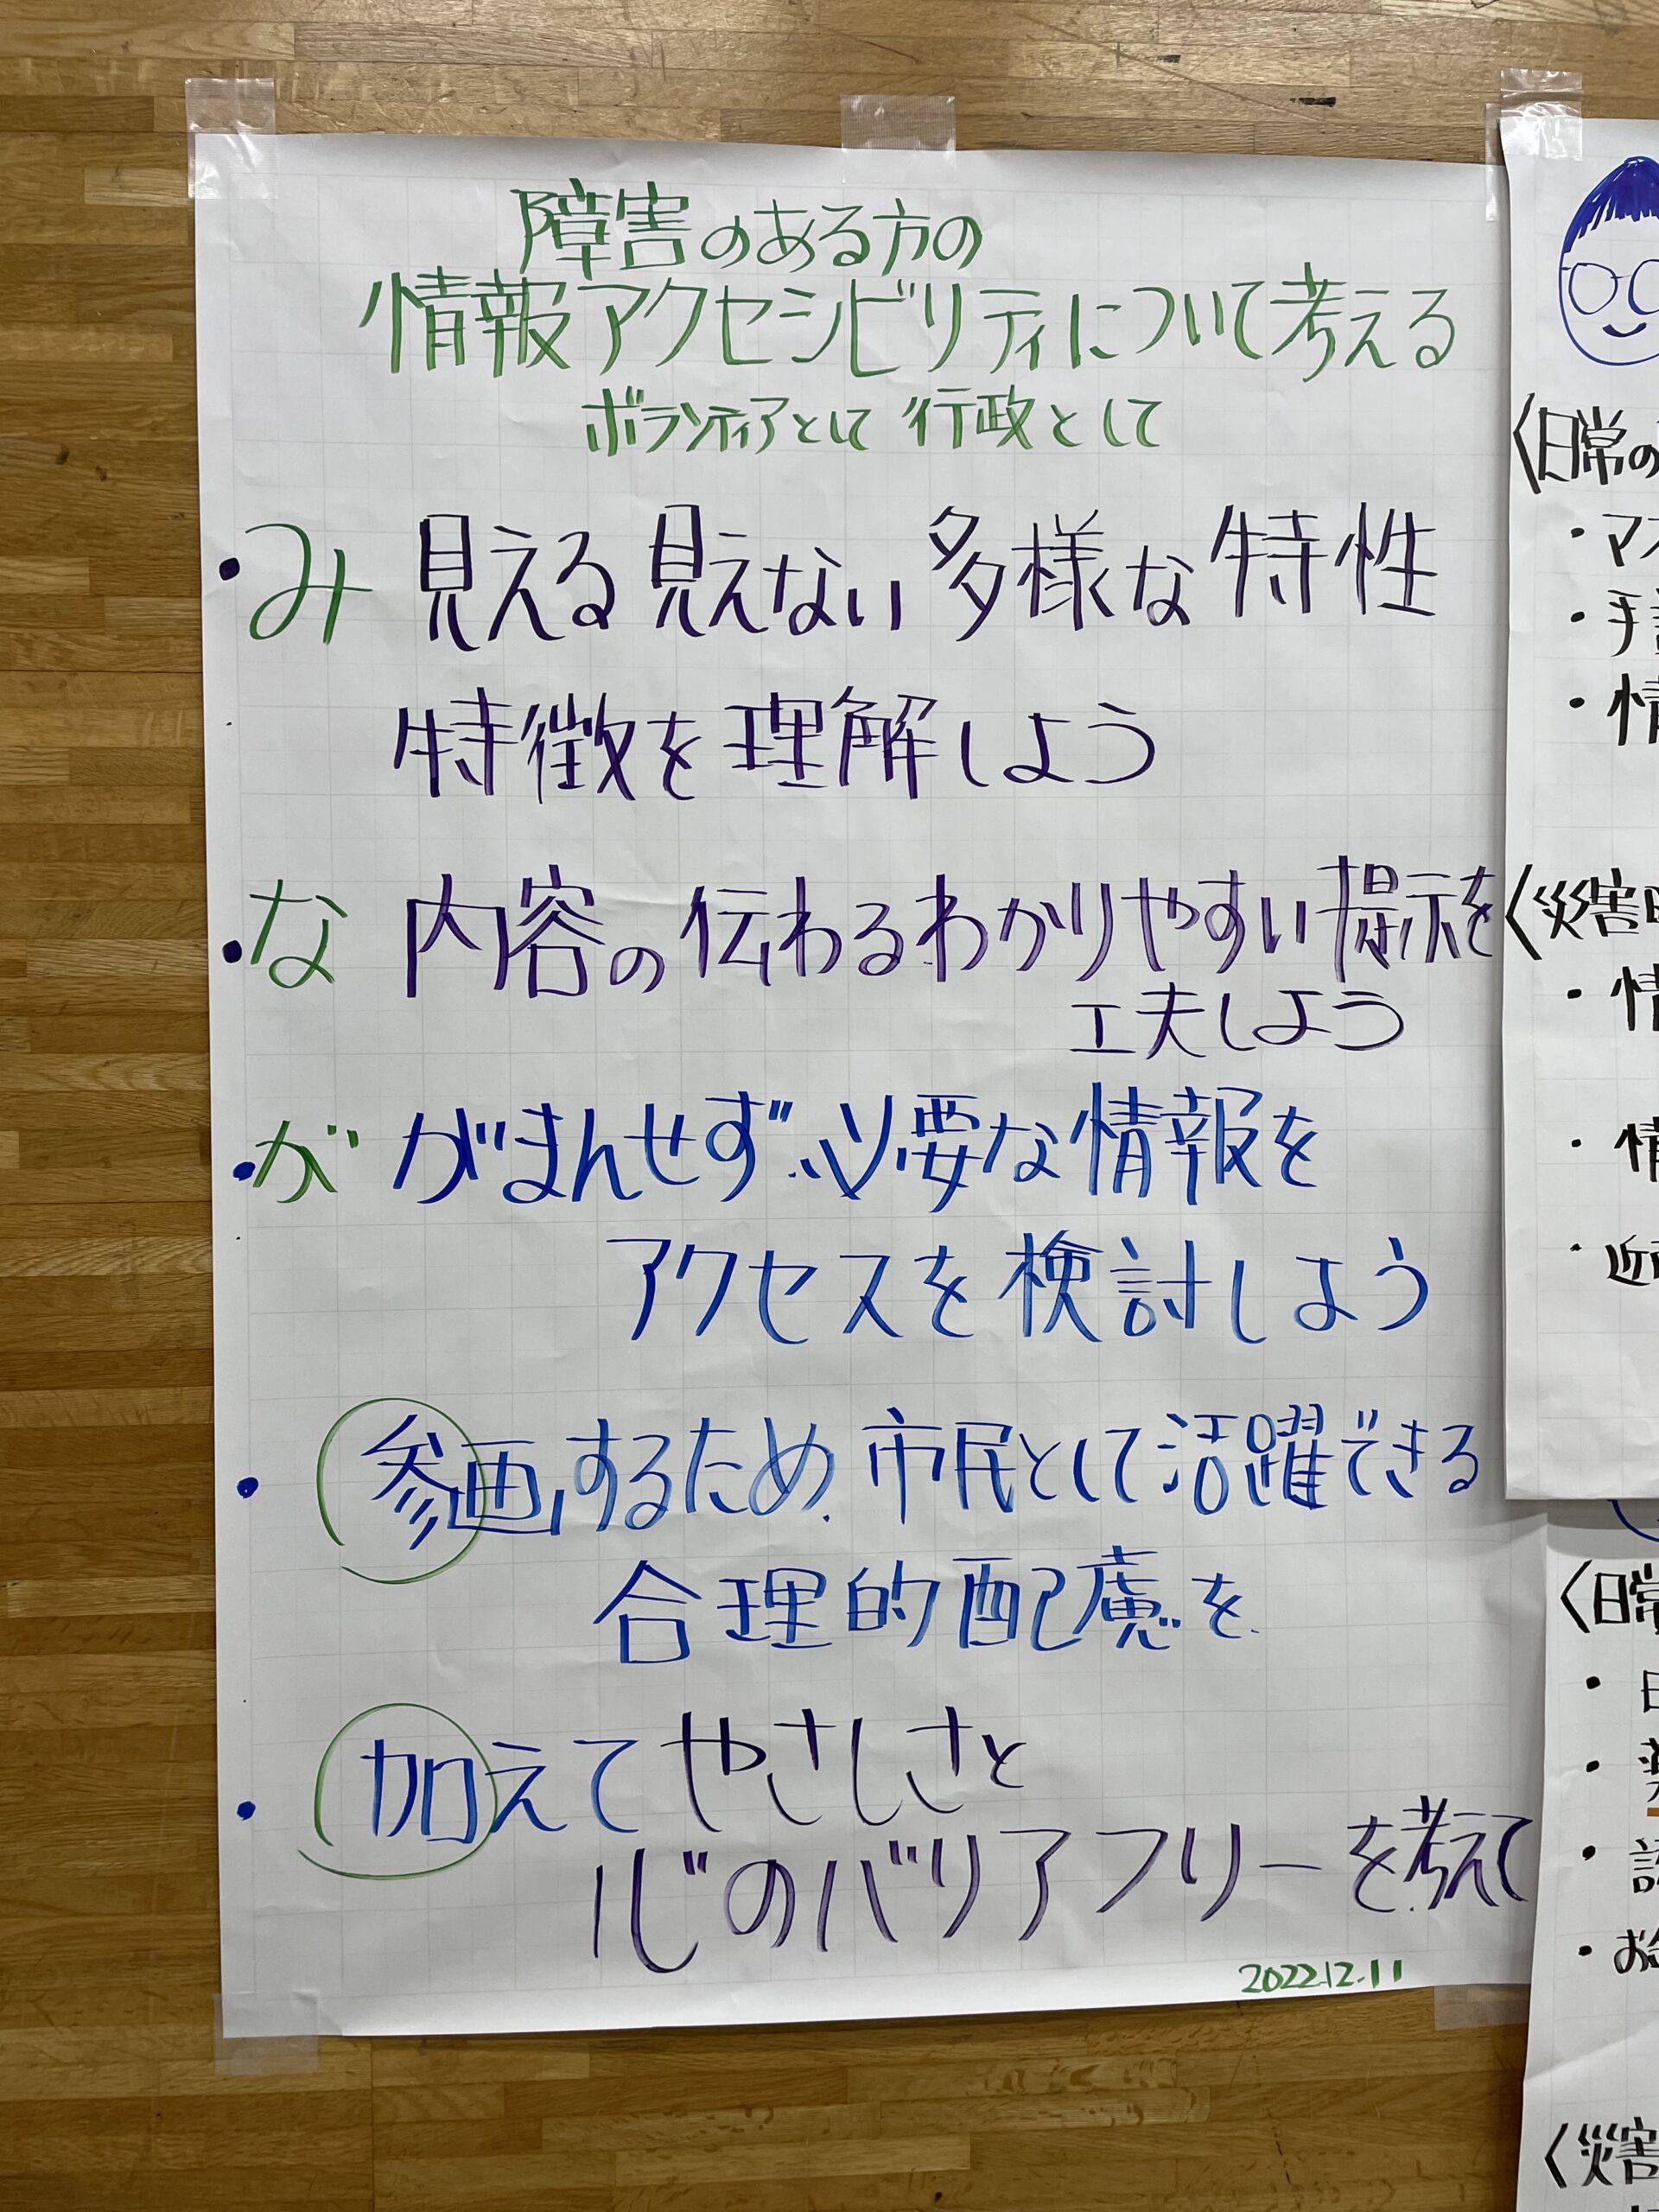 障害のある方の
情報アクセシビリティについて考える
ボランティアとして 行政として
・み 見える見えない多様な特性
特徴を理解しよう
・な 内容の伝わるわかりやすい提示を
工夫しよう
・が がまんせず、必要な情報を
アクセスを検討しよう
・参画するため、市民として活躍できる
合理的配慮を
・加えてやさしさと
心のバリアフリーを考えて
2022.12.11
〈日常の
・マス
・手
・情
〈災害
・情
・情
・近
〈日常
・日
・薬
・お
〈災害